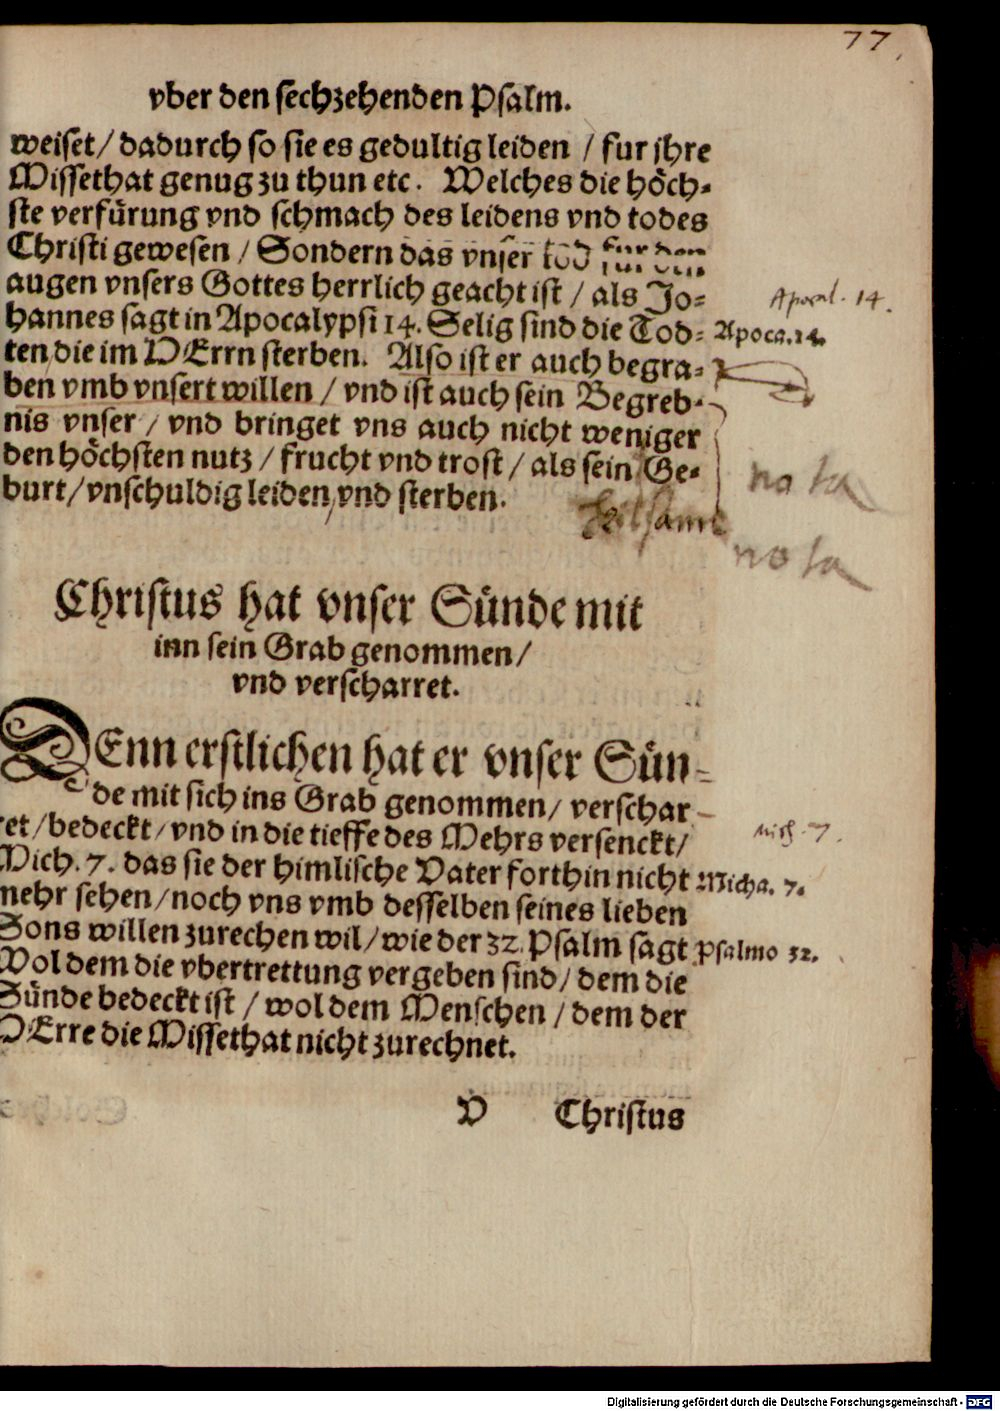 77
vber den sechzehenden Psalm.
weiset/ dadurch so sie es gedultig leiden / fur jhre
Missethat genug zu thun etc. Welches die höch-
ste verfürung vnd schmach des leidens vnd todes
Christi gewesen / Sondern das vnser tod fur den
augen vnsers Gottes herrlich geacht ist / als Jo-
hannes sagt in Apocalypsi 14. Selig sind die Tod-
ten die im HErrn sterben. Also ist er auch begra-
ben vmb vnsert willen / vnd ist auch sein Begreb-
nis vnser / vnd bringet vns auch nicht weniger
den höchsten nutz / frucht vnd trost / als sein Ge-
burt/ vnschuldig leiden vnd sterben.
Apocal. 14.
Apoca. 14.
nota
nota
Christus hat vnser Sünde mit
inn sein Grab genommen/
vnd verscharret.
DEnn erstlichen hat er vnser Sün-
de mit sich ins Grab genommen/ verschar
ret/ bedeckt/ vnd in die tieffe des Mehrs versenckt/
Mich. 7. das sie der himlische Vater forthin nicht
mehr sehen/ noch vns vmb desselben seines lieben
Sons willen zurechen wil/ wie der 32. Psalm sagt
Wol dem die vbertrettung vergeben sind/ dem die
Sünde bedeckt ist / wol dem Menschen / dem der
HErre die Missethat nicht zurechnet.
Mich. 7.
Micha. 7.
Psalmo 32.
V Christus
Digitalisierung gefördert durch die Deutsche Forschungsgemeinschaft - DFG